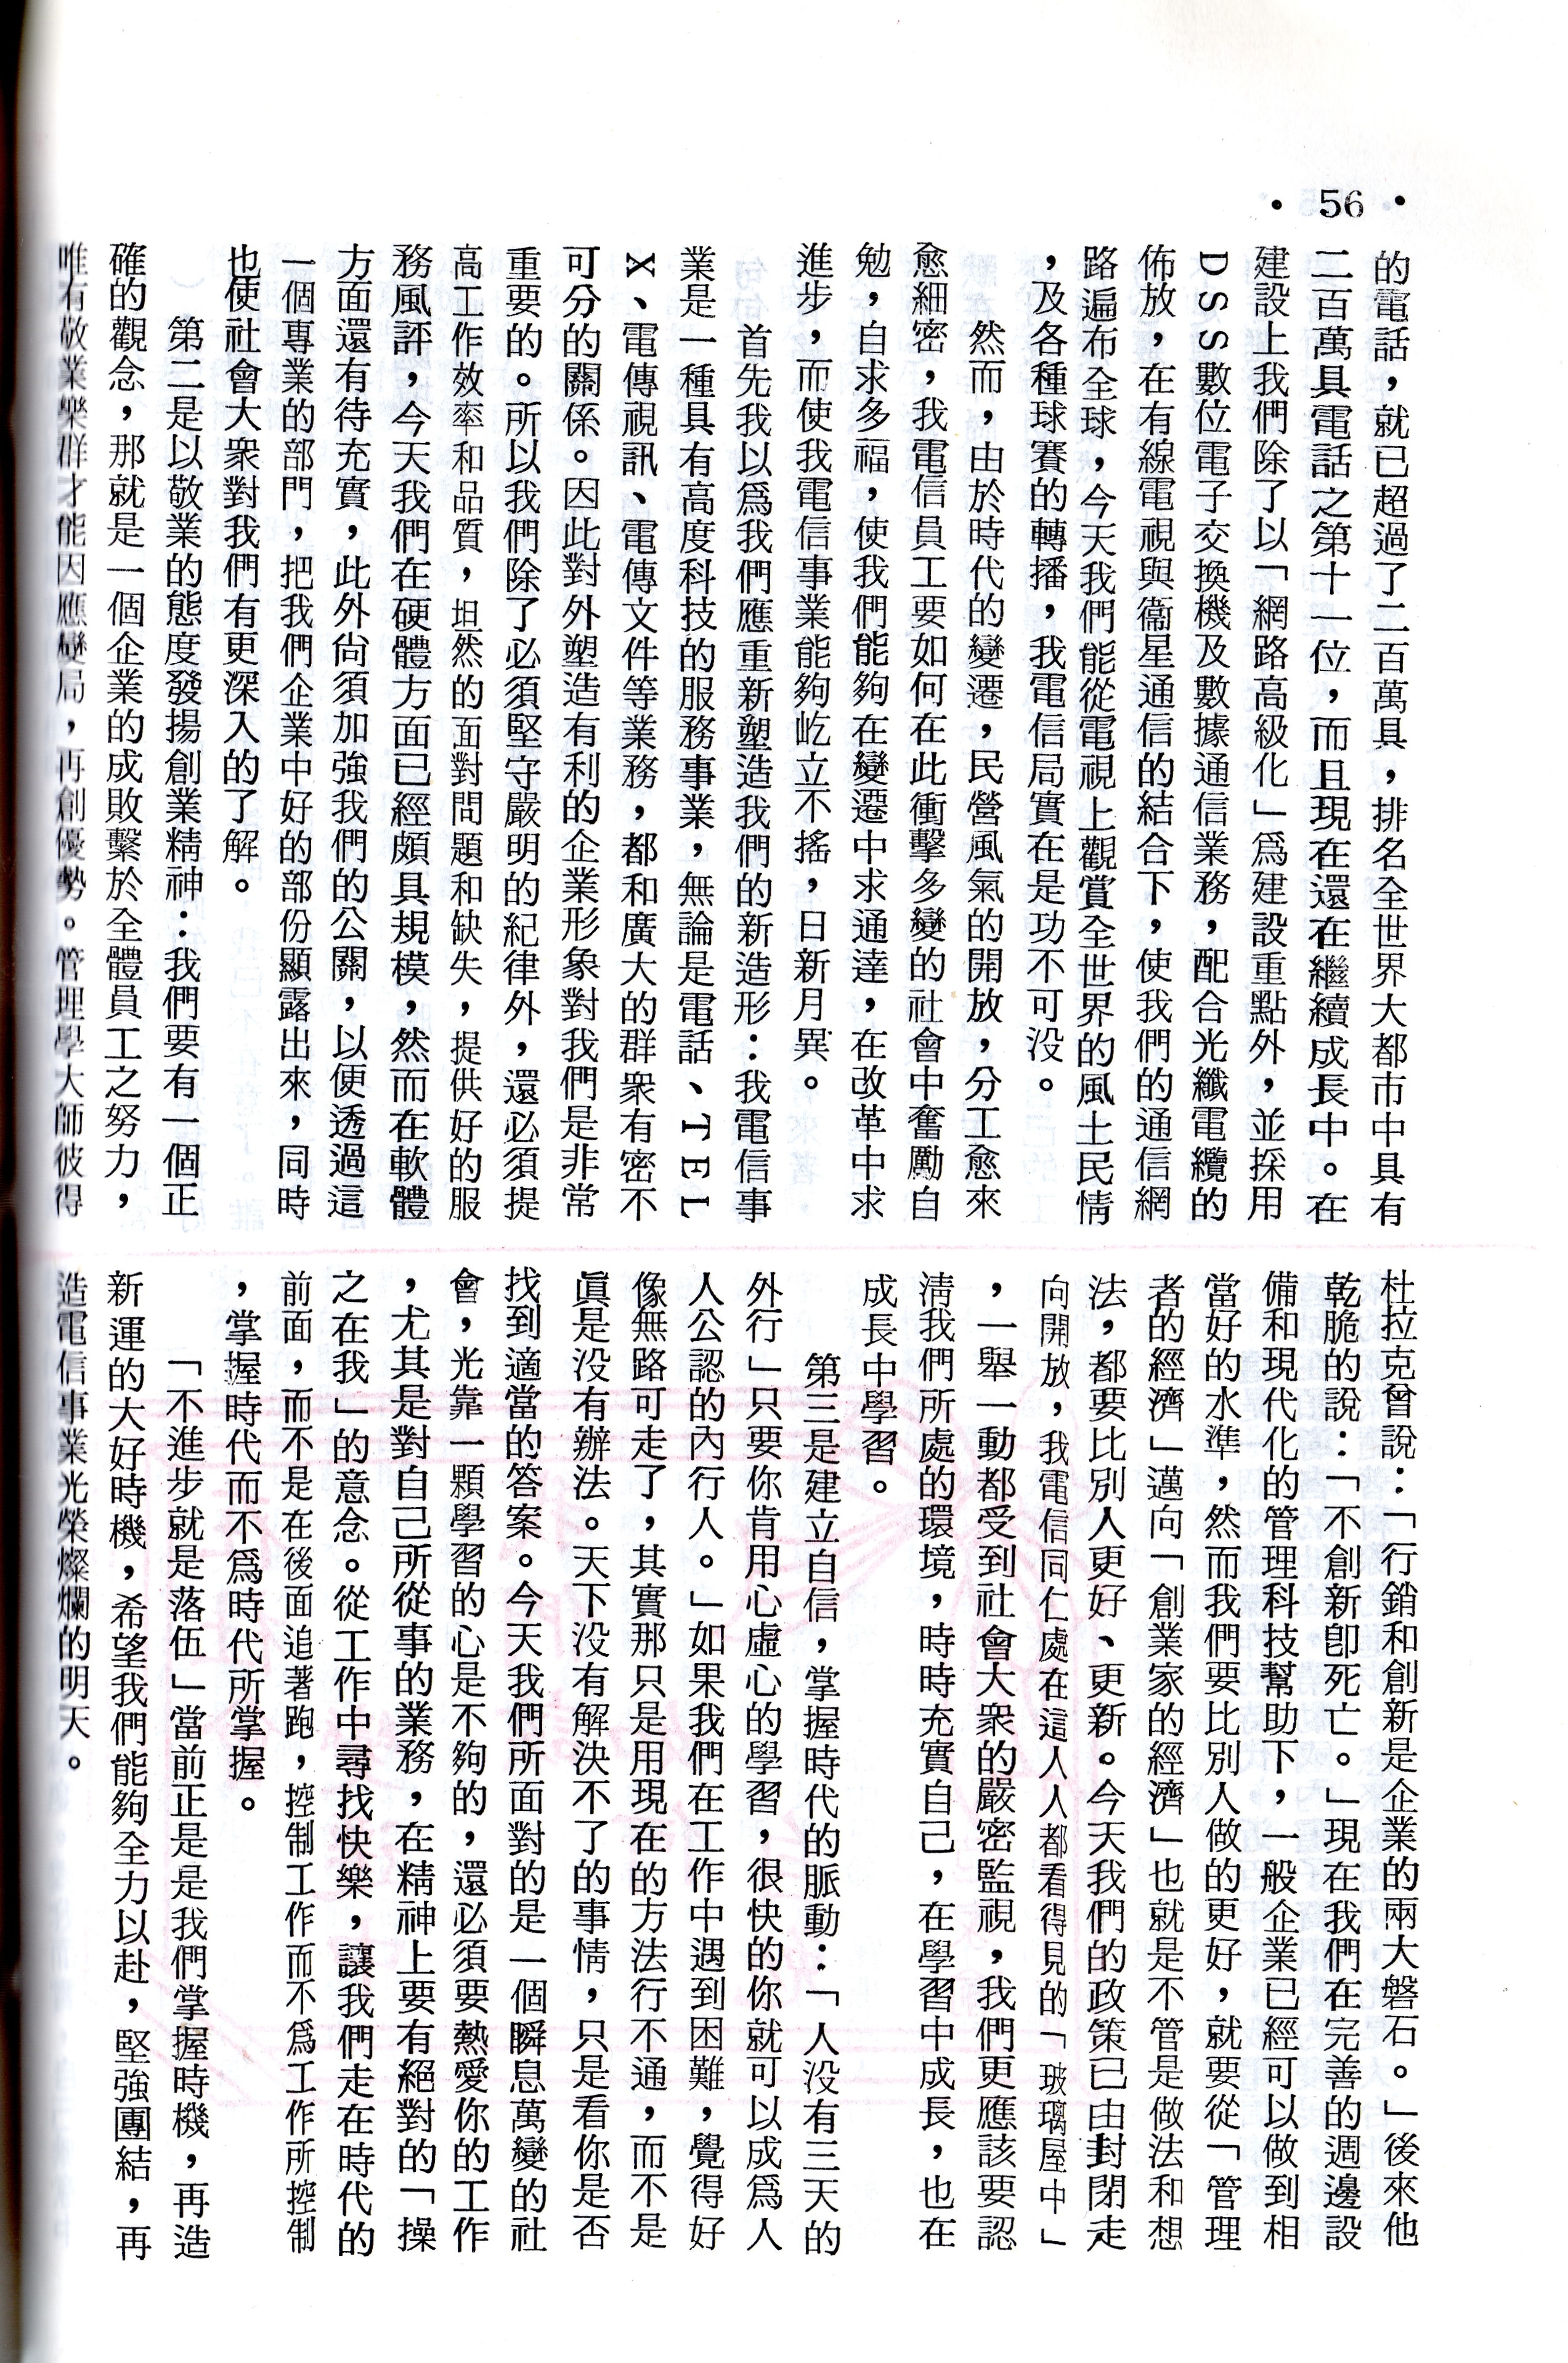 • 56 •
的電話，就已超過了二百萬具，排名全世界大都市中具有
二百萬具電話之第十一位，而且現在還在繼續成長中。在
建設上我們除了以「網路高級化」爲建設重點外，並採用
DSS數位電子交換機及數據通信業務，配合光纖電纜的
佈放，在有線電視與衞星通信的結合下，使我們的通信網
路遍布全球，今天我們能從電視上觀賞全世界的風土民情
，及各種球賽的轉播，我電信局實在是功不可没。
然而，由於時代的變遷，民營風氣的開放，分工愈來
愈細密，我電信員工要如何在此衝擊多變的社會中奮勵自
勉，自求多福，使我們能夠在變遷中求通達，在改革中求
進步，而使我電信事業能夠屹立不搖，日新月異。
首先我以爲我們應重新塑造我們的新造形：我電信事
業是一種具有高度科技的服務事業，無論是電話、TEL
X、電傳視訊、電傳文件等業務，都和廣大的群衆有密不
可分的關係。因此對外塑造有利的企業形象對我們是非常
重要的。所以我們除了必須堅守嚴明的紀律外，還必須提
高工作效率和品質，坦然的面對問題和缺失，提供好的服
務風評，今天我們在硬體方面已經頗具規模，然而在軟體
方面還有待充實，此外尙須加強我們的公關，以便透過這
一個專業的部門，把我們企業中好的部份顯露出來，同時
也使社會大衆對我們有更深入的了解。
第二是以敬業的態度發揚創業精神：我們要有一個正
確的觀念，那就是一個企業的成敗繫於全體員工之努力，
唯有敬業樂群才能因應變局，再創優勢。管理學大師彼得
杜拉克曾說：「行銷和創新是企業的兩大磐石。」後來他
乾脆的說：「不創新卽死亡。」現在我們在完善的週邊設
備和現代化的管理科技幫助下，一般企業已經可以做到相
當好的水準，然而我們要比別人做的更好，就要從「管理
者的經濟」邁向「創業家的經濟」也就是不管是做法和想
法，都要比別人更好、更新。今天我們的政策已由封閉走
向開放，我電信同仁處在這人人都看得見的「玻璃屋中」
，一舉一動都受到社會大衆的嚴密監視，我們更應該要認
淸我們所處的環境，時時充實自己，在學習中成長，也在
成長中學習。
第三是建立自信，掌握時代的脈動：「人没有三天的
外行」只要你肯用心虛心的學習，很快的你就可以成爲人
人公認的內行人。」如果我們在工作中遇到困難，覺得好
像無路可走了，其實那只是用現在的方法行不通，而不是
眞是没有辦法。天下没有解決不了的事情，只是看你是否
找到適當的答案。今天我們所面對的是一個瞬息萬變的社
會，光靠一顆學習的心是不夠的，還必須要熱愛你的工作
，尤其是對自己所從事的業務，在精神上要有絕對的「操
之在我」的意念。從工作中尋找快樂，讓我們走在時代的
前面，而不是在後面追著跑，控制工作而不爲工作所控制
，掌握時代而不爲時代所掌握。
「不進步就是落伍」當前正是是我們掌握時機，再造
新運的大好時機，希望我們能夠全力以赴，堅強團結，再
造電信事業光榮燦爛的明天。